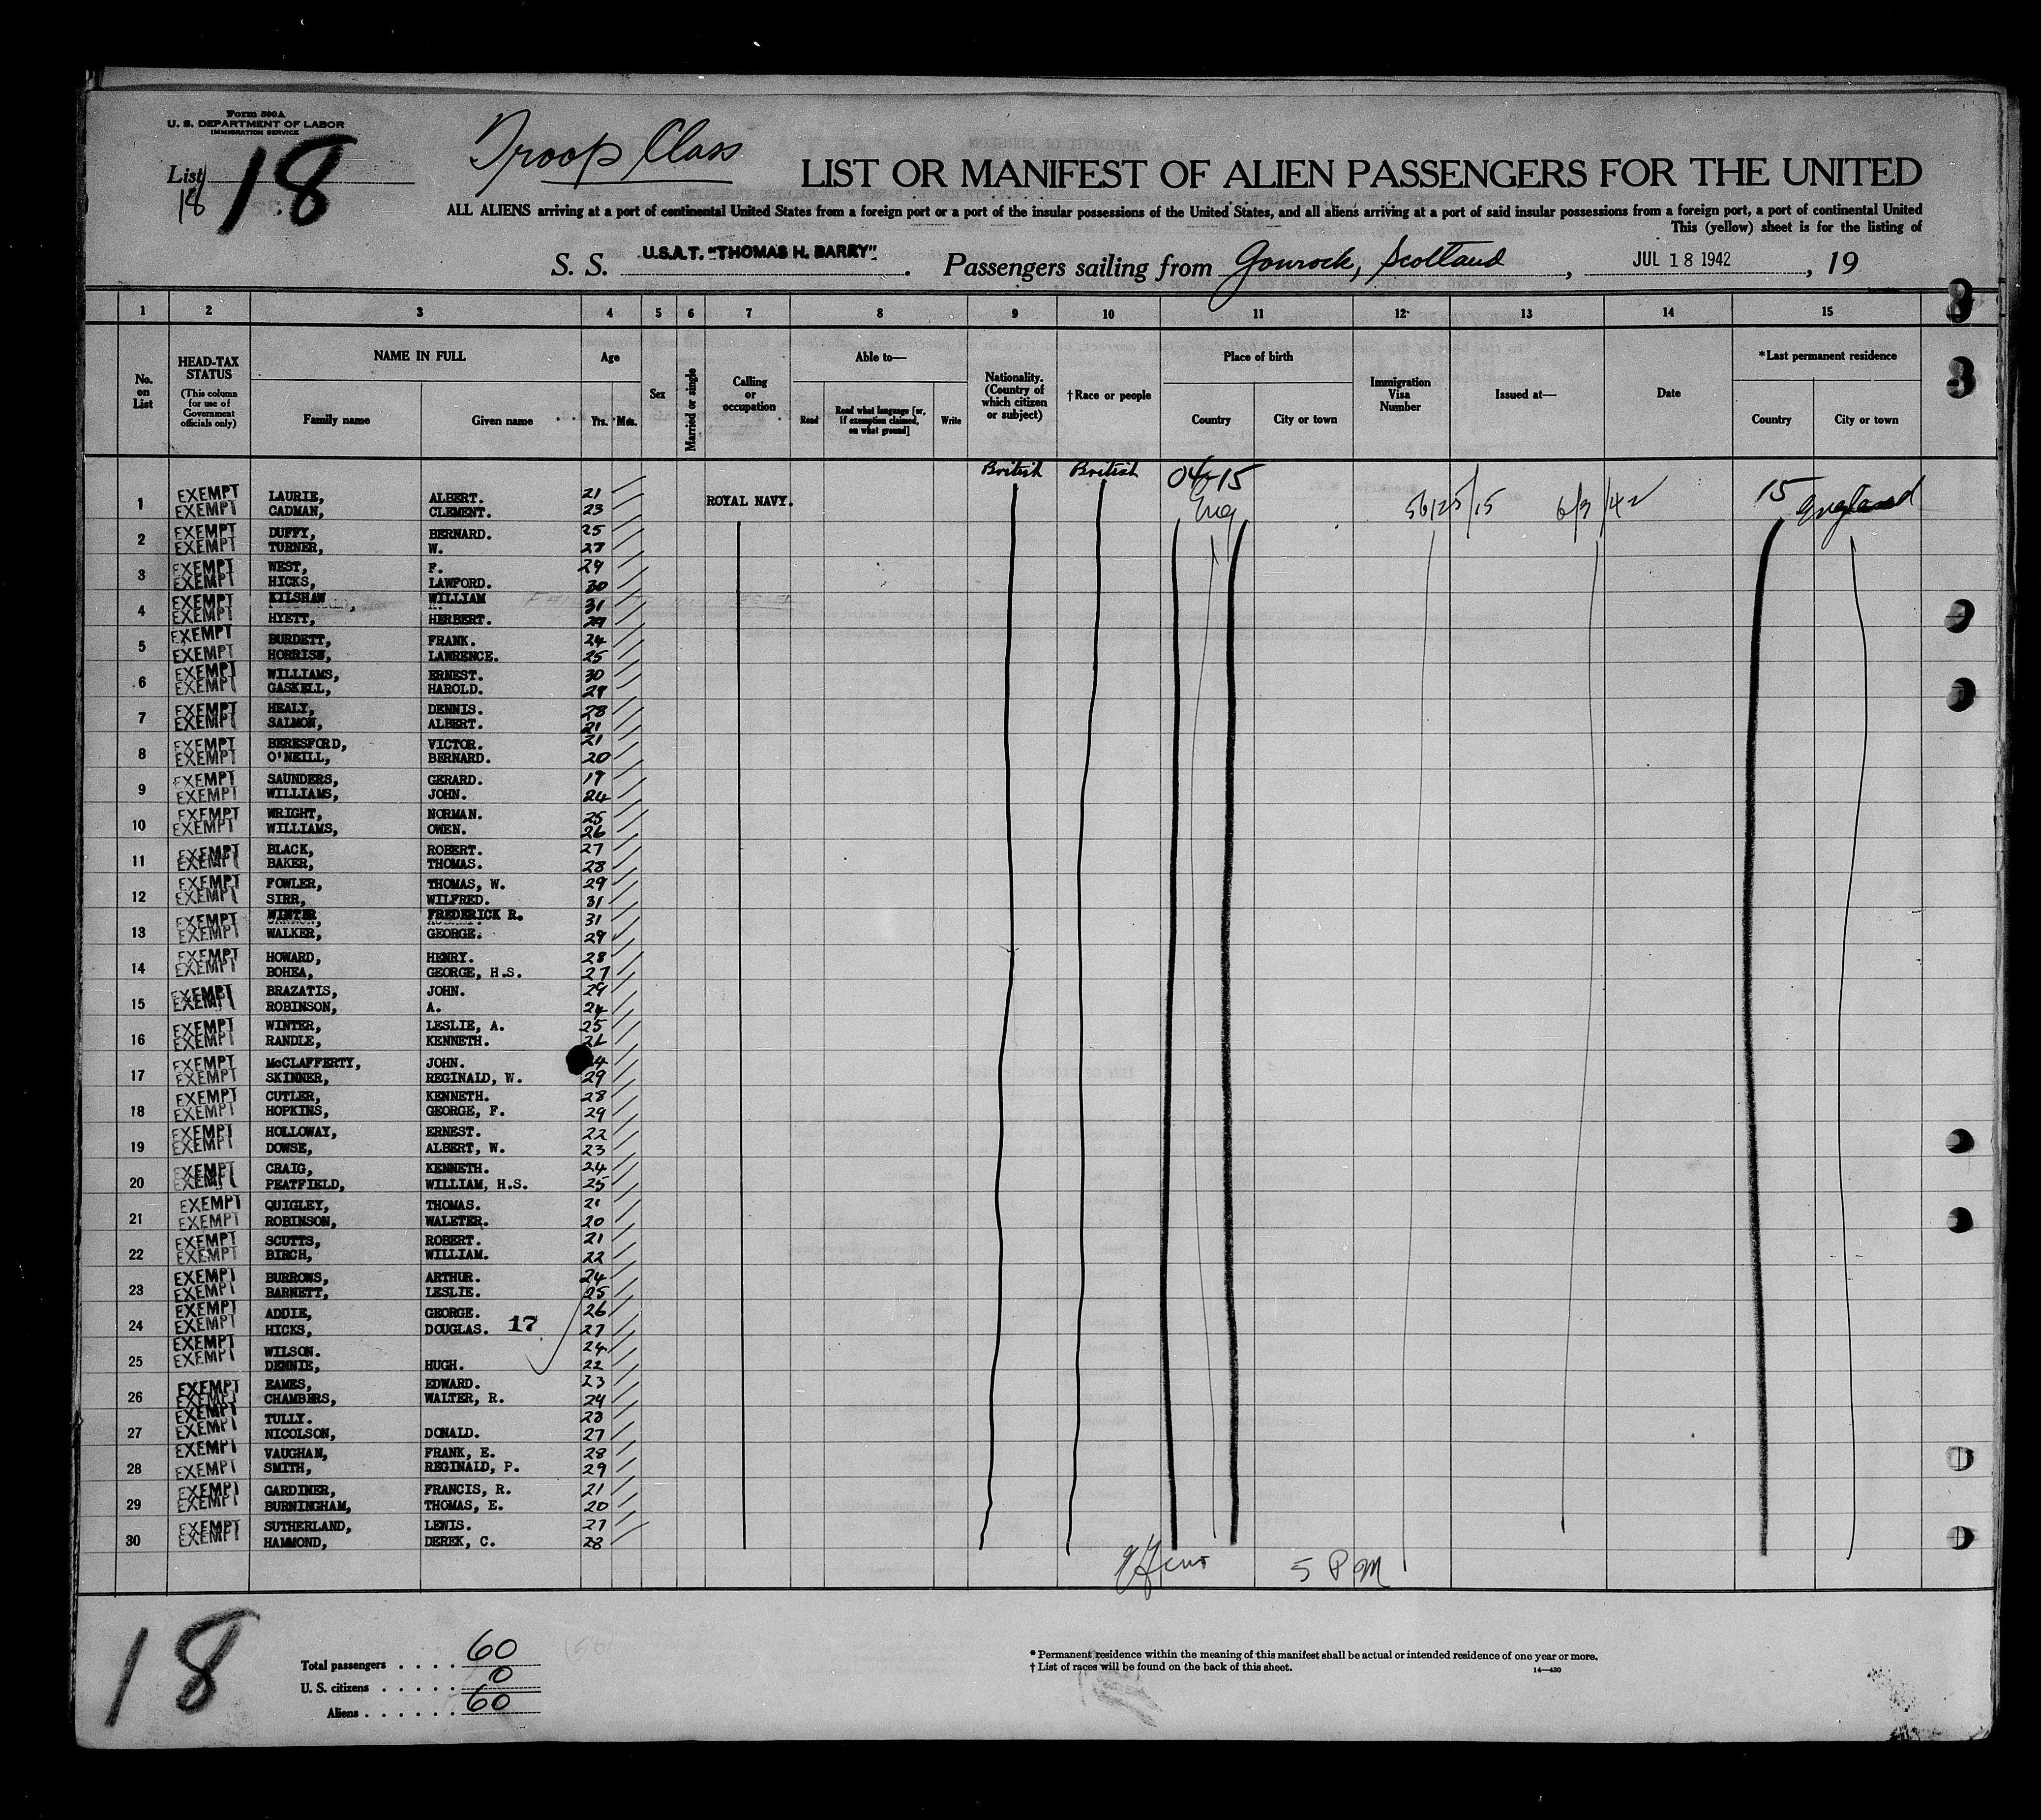 Form 500A
U. S. DEPARTMENT OF LABOR
IMMIGRATION SERVICE
List 18
18
Troop Class
LIST OR MANIFEST OF ALIEN PASSENGERS FOR THE UNITED
ALL ALIENS arriving at a port of continental United States from a foreign port or a port of the insular possessions of the United States, and all aliens arriving at a port of said insular possessions from a foreign port, a port of continental United
This (yellow) sheet is for the listing of
S. S. U.S.A.T. "THOMAS H. BARRY". Passengers sailing from Gourock, Scotland, JUL 18 1942, 19
1 2 3 4 5 6 7 8 9 10 11 12 13 14 15
No. on List
HEAD-TAX STATUS (This column for use of Government officials only)
NAME IN FULL
Family name Given name
Age
Yrs. Mos.
Sex
Married or single
Calling or occupation
Able to—
Read
Read what language [or, if exemption claimed, on what ground]
Write
Nationality. (Country of which citizen or subject)
†Race or people
Place of birth
Country City or town
Immigration Visa Number
Issued at—
Date
*Last permanent residence
Country City or town
British British 04-15
1 EXEMPT LAURIE, ALBERT. 21 ROYAL NAVY. Eng 15 England
EXEMPT CADMAN, CLEMENT. 23
2 EXEMPT DUFFY, BERNARD. 25
EXEMPT TURNER, W. 27
3 EXEMPT WEST, F. 29
EXEMPT HICKS, LAWFORD. 30
4 EXEMPT KILSHAW, WILLIAM 31
EXEMPT HYETT, HERBERT. 29
5 EXEMPT BURDETT, FRANK. 24
EXEMPT HORRISW, LAWRENCE. 25
6 EXEMPT WILLIAMS, ERNEST. 30
EXEMPT GASKELL, HAROLD. 29
7 EXEMPT HEALY, DENNIS. 28
EXEMPT SALMON, ALBERT. 21
8 EXEMPT BERESFORD, VICTOR. 21
EXEMPT O'NEILL, BERNARD. 20
9 EXEMPT SAUNDERS, GERARD. 19
EXEMPT WILLIAMS, JOHN. 24
10 EXEMPT WRIGHT, NORMAN. 25
EXEMPT WILLIAMS, OWEN. 26
11 EXEMPT BLACK, ROBERT. 27
EXEMPT BAKER, THOMAS. 28
12 EXEMPT FOWLER, THOMAS, W. 29
EXEMPT SIRR, WILFRED. 31
13 EXEMPT WINTER, FREDERICK R. 31
EXEMPT WALKER, GEORGE. 29
14 EXEMPT HOWARD, HENRY. 28
EXEMPT BOHEA, GEORGE, H.S. 27
15 EXEMPT BRAZATIS, JOHN. 29
EXEMPT ROBINSON, A. 24
16 EXEMPT WINTER, LESLIE, A. 25
EXEMPT RANDLE, KENNETH.
17 EXEMPT McCLAFFERTY, JOHN.
EXEMPT SKINNER, REGINALD, W. 29
18 EXEMPT CUTLER, KENNETH. 28
EXEMPT HOPKINS, GEORGE, F. 29
19 EXEMPT HOLLOWAY, ERNEST. 22
EXEMPT DOWSE, ALBERT, W. 23
20 EXEMPT CRAIG, KENNETH. 24
EXEMPT PEATFIELD, WILLIAM, H.S. 25
21 EXEMPT QUIGLEY, THOMAS. 21
EXEMPT ROBINSON, WALETER. 20
22 EXEMPT SCUTTS, ROBERT. 21
EXEMPT BIRCH, WILLIAM. 22
23 EXEMPT BURROWS, ARTHUR. 24
EXEMPT BARNETT, LESLIE. 25
24 EXEMPT ADDIE, GEORGE. 26
EXEMPT HICKS, DOUGLAS. 17 27
25 EXEMPT WILSON. 24
EXEMPT DENNIE, HUGH. 22
26 EXEMPT EAMES, EDWARD. 23
EXEMPT CHAMBERS, WALTER, R. 24
27 EXEMPT TULLY. 28
EXEMPT NICOLSON, DONALD. 27
28 EXEMPT VAUGHAN, FRANK, E. 28
EXEMPT SMITH, REGINALD, P. 29
29 EXEMPT GARDINER, FRANCIS, R. 21
EXEMPT BURNINGHAM, THOMAS, E. 20
30 EXEMPT SUTHERLAND, LEWIS. 27
EXEMPT HAMMOND, DEREK, C. 28
5 PM
18
Total passengers . . . . 60
U. S. citizens . . . . . 0
Aliens . . . . . . 60
* Permanent residence within the meaning of this manifest shall be actual or intended residence of one year or more.
† List of races will be found on the back of this sheet.
14—430